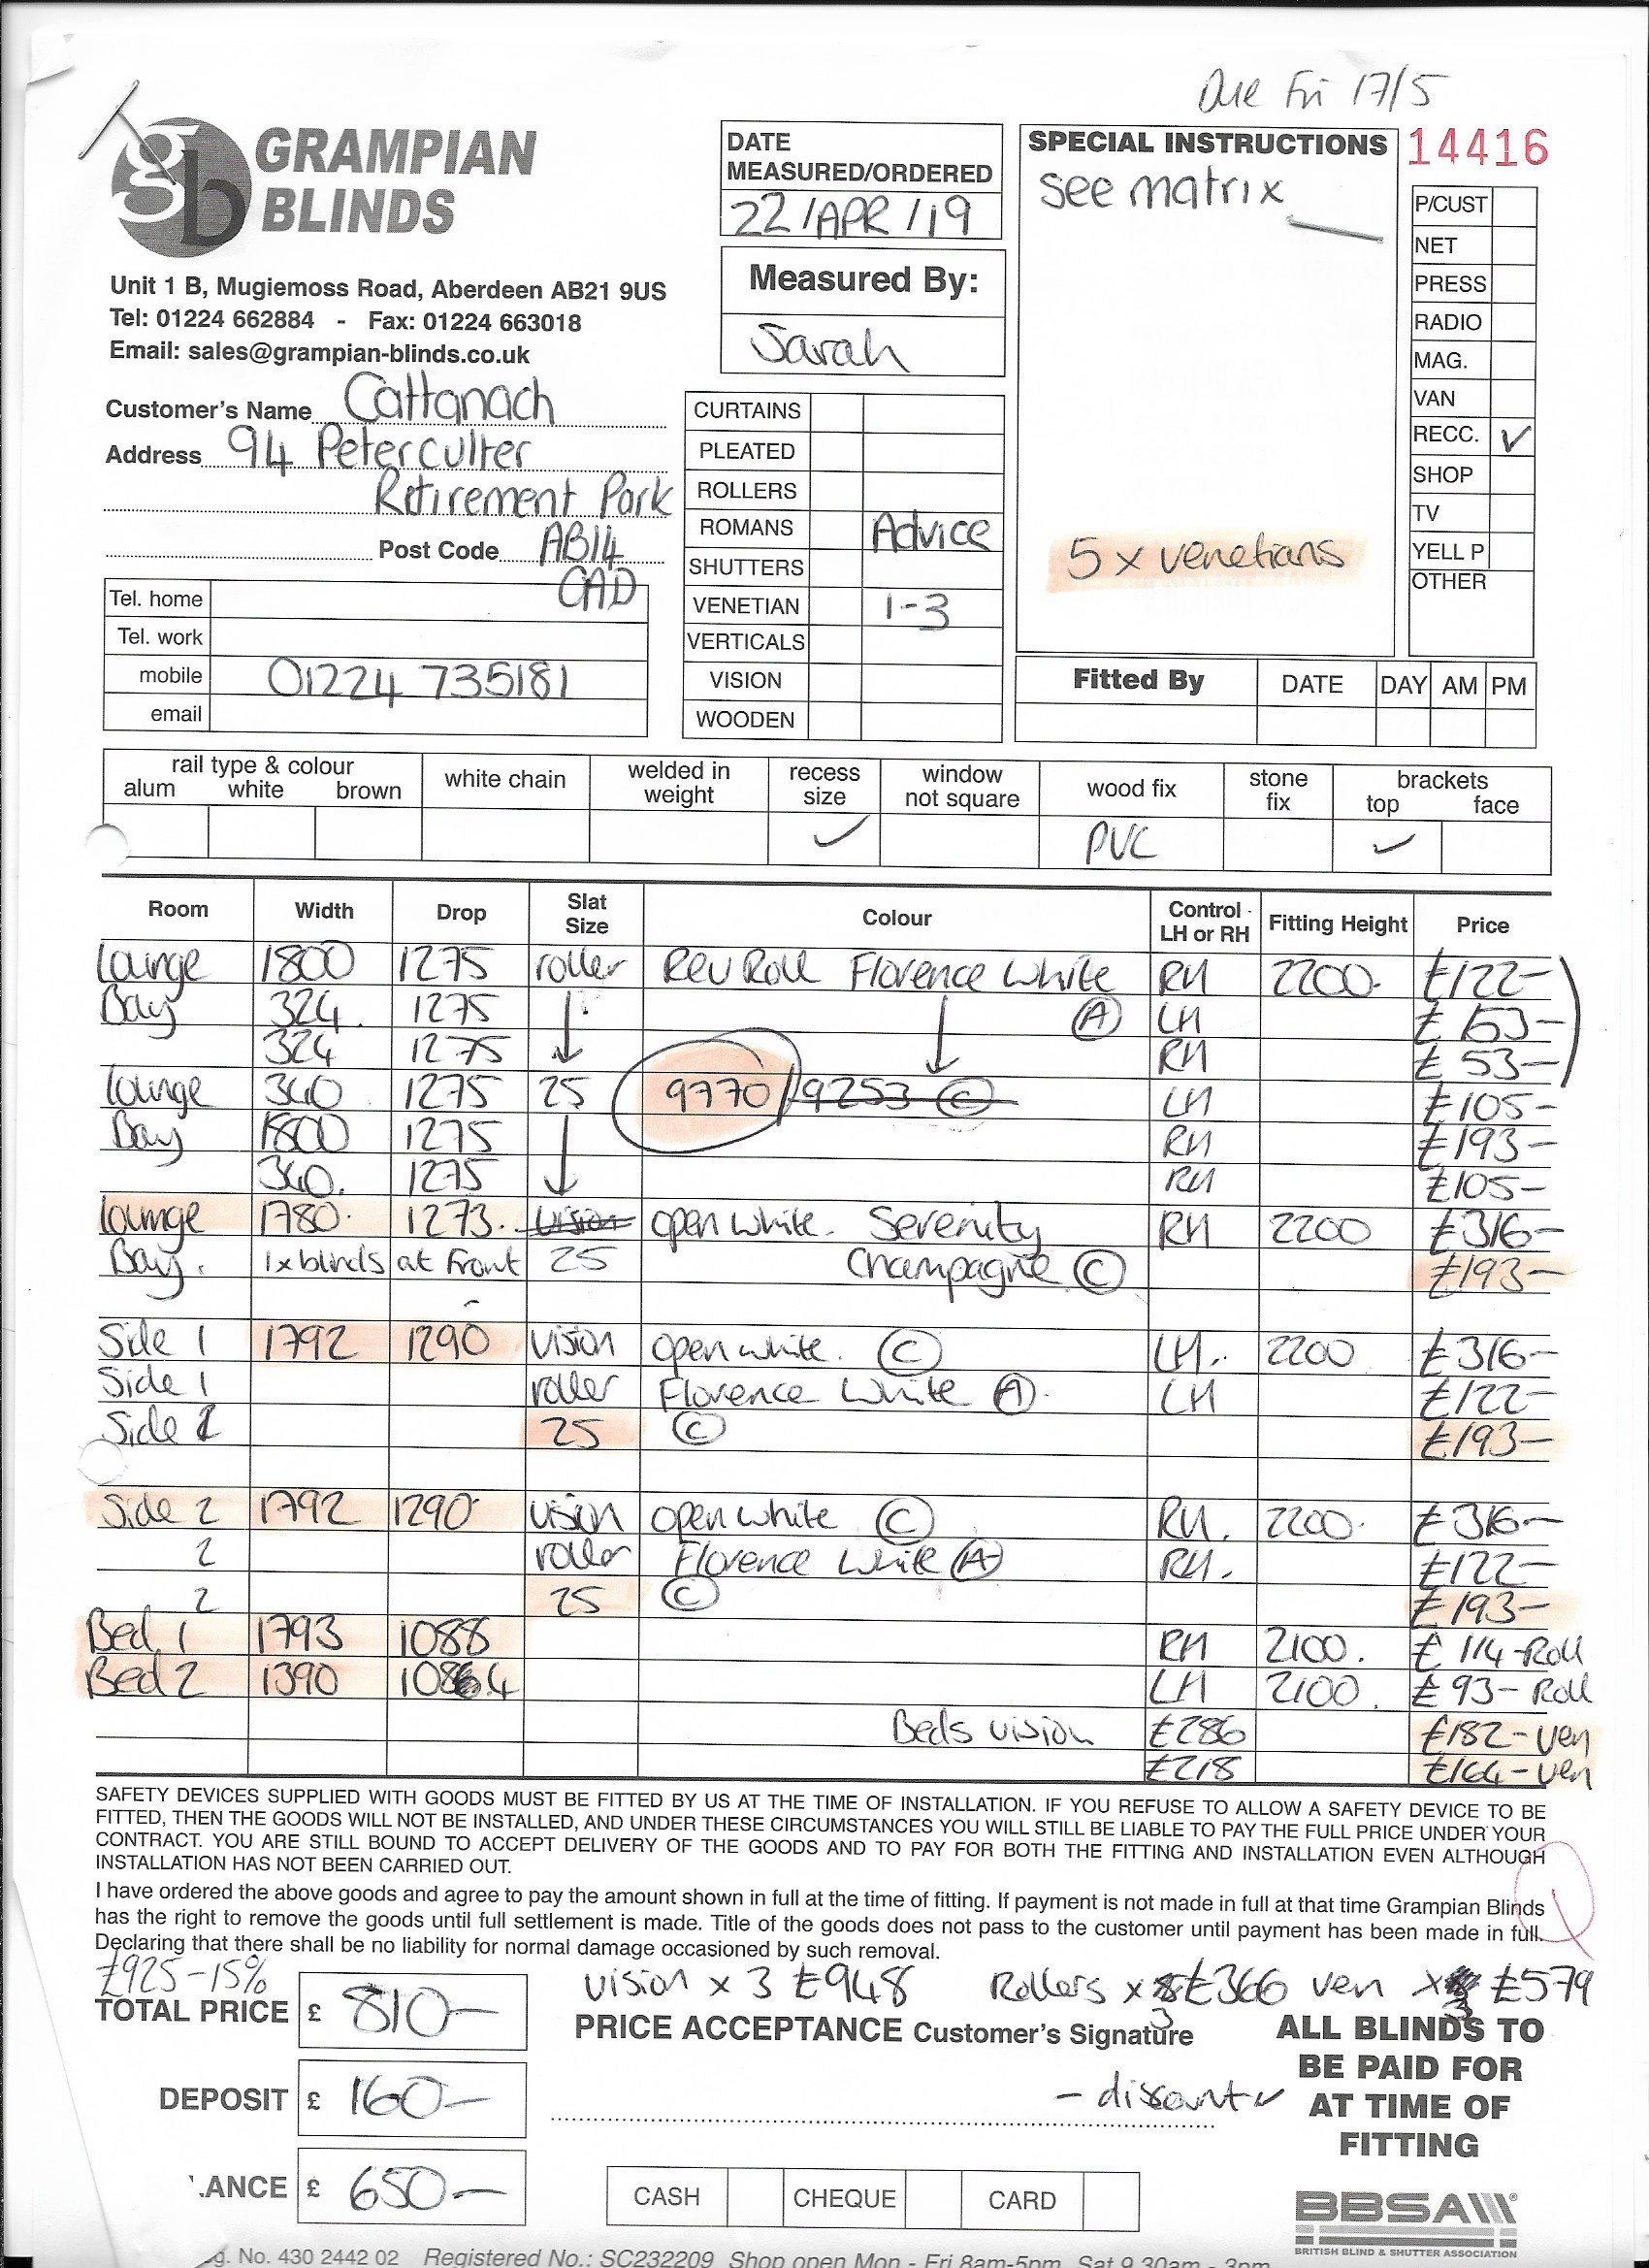 Due Fri 17/5
gb GRAMPIAN
BLINDS
Unit 1 B, Mugiemoss Road, Aberdeen AB21 9US
Tel: 01224 662884 - Fax: 01224 663018
Email: sales@grampian-blinds.co.uk
Customer's Name Cattanach
Address 94 Peterculter
Retirement Park
Post Code AB14
OAD
Tel. home
Tel. work
mobile 01224 735181
email
DATE
MEASURED/ORDERED
22/APR/19
Measured By:
Sarah
CURTAINS
PLEATED
ROLLERS
ROMANS Advice
SHUTTERS
VENETIAN 1-3
VERTICALS
VISION
WOODEN
SPECIAL INSTRUCTIONS
see matrix
5 x venetians
14416
P/CUST
NET
PRESS
RADIO
MAG.
VAN
RECC. ✓
SHOP
TV
YELL P
OTHER
Fitted By DATE DAY AM PM
rail type & colour white chain welded in recess window wood fix stone brackets
alum white brown weight size not square fix top face
✓ PVC ✓
Room Width Drop Slat Size Colour Control LH or RH Fitting Height Price
Lounge 1800 1275 roller Rev Roll Florence White RH 2200. £122-
Bay 324. 1275 ↓ (A) ↓ LH £53-
324 1275 RH £53-
Lounge 340 1275 25 9770/9253 (C) LH £105-
Bay 1800 1275 ↓ RH £193-
340. 1275 RH £105-
lounge 1780. 1273. vision open white. Serenity RH 2200 £316-
Bay. 1x blinds at Front 25 Champagne (C) £193-
Side 1 1792 1290 vision open white. (C) LH. 2200 £316-
Side 1 roller Florence White (A). LH £122-
Side 1 25 (C) £193-
Side 2 1792 1290 vision open white (C) RH. 2200. £316-
2 roller Florence White (A) RH. £122-
2 25 (C) £193-
Bed 1 1793 1088 RH 2100. £114-Roll
Bed 2 1390 1084 LH 2100. £93-Roll
Beds vision £286 £182-ven
£218 £164-ven
SAFETY DEVICES SUPPLIED WITH GOODS MUST BE FITTED BY US AT THE TIME OF INSTALLATION. IF YOU REFUSE TO ALLOW A SAFETY DEVICE TO BE
FITTED, THEN THE GOODS WILL NOT BE INSTALLED, AND UNDER THESE CIRCUMSTANCES YOU WILL STILL BE LIABLE TO PAY THE FULL PRICE UNDER YOUR
CONTRACT. YOU ARE STILL BOUND TO ACCEPT DELIVERY OF THE GOODS AND TO PAY FOR BOTH THE FITTING AND INSTALLATION EVEN ALTHOUGH
INSTALLATION HAS NOT BEEN CARRIED OUT.
I have ordered the above goods and agree to pay the amount shown in full at the time of fitting. If payment is not made in full at that time Grampian Blinds
has the right to remove the goods until full settlement is made. Title of the goods does not pass to the customer until payment has been made in full.
Declaring that there shall be no liability for normal damage occasioned by such removal.
£925-15% vision x 3 £948 Rollers x 3 £366 ven x 3 £579
TOTAL PRICE £ 810-
PRICE ACCEPTANCE Customer's Signature
- discount ✓
DEPOSIT £ 160-
ANCE £ 650-
CASH CHEQUE CARD
ALL BLINDS TO
BE PAID FOR
AT TIME OF
FITTING
BBSA
BRITISH BLIND & SHUTTER ASSOCIATION
g. No. 430 2442 02 Registered No.: SC232209 Shop open Mon - Fri 8am-5pm Sat 9.30am - 3pm